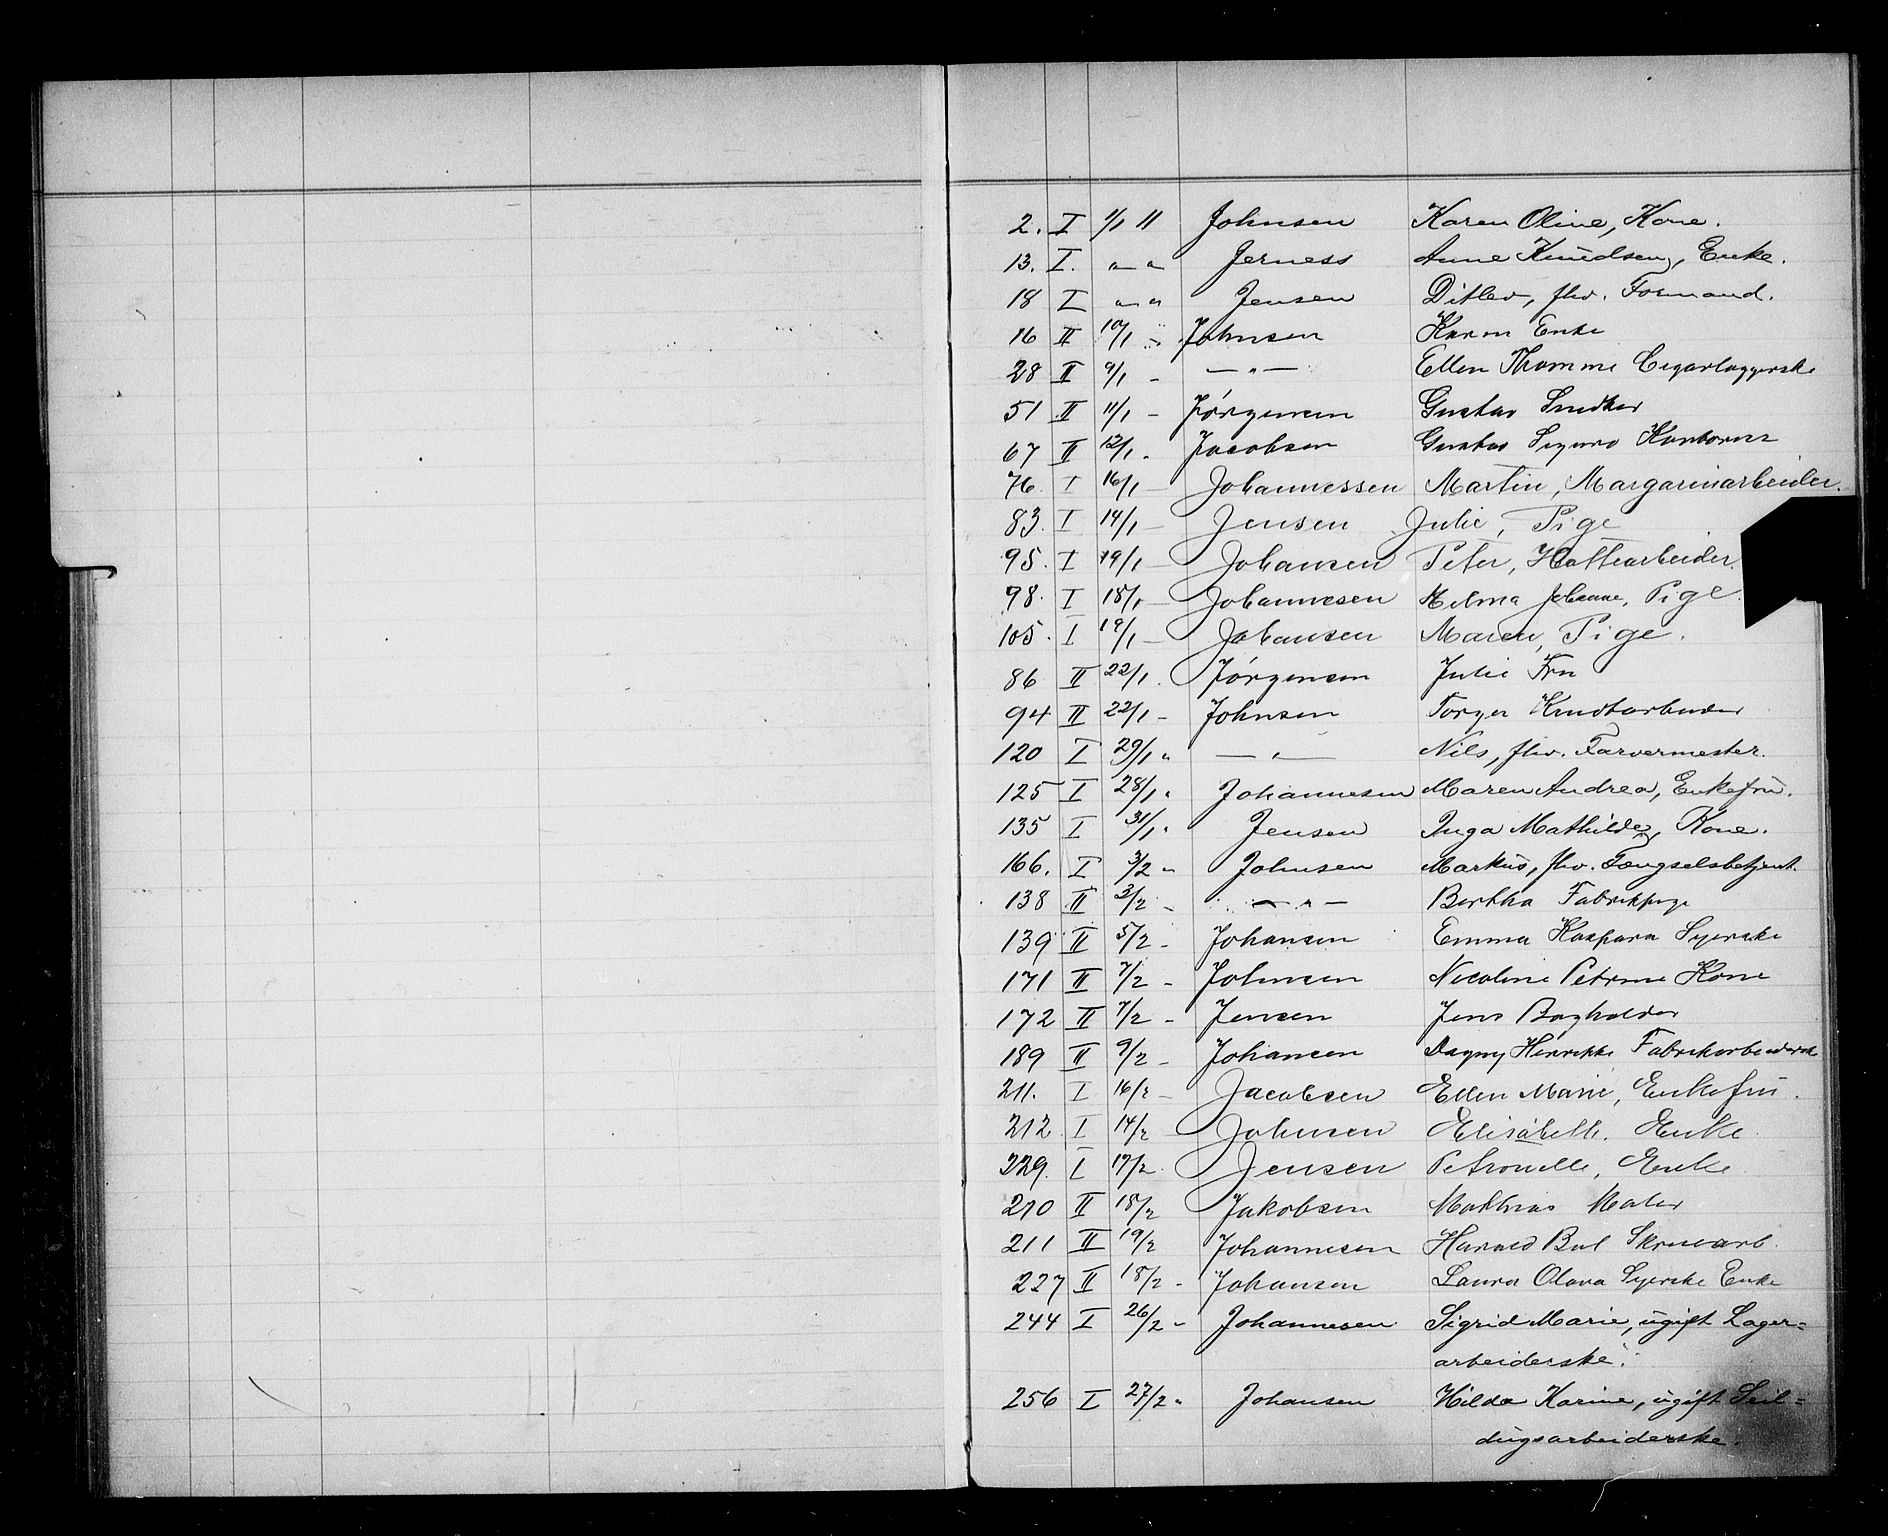 2. I 1/1 11 Johnsen Karen Oline, Kone.
13. I. " " Jerness Anne Knudsen, Enke.
18 I " " Jensen Ditlev, fhv. Formand.
16 II 10/1 " Johnsen Karen Enke
28 II 9/1 - — " — Ellen Thomine Cigarlæggerske
51 II 11/1 - Jörgensen Gustav Snedker
67 II 12/1 - Jacobsen Gustav Sigurd Kontorist
76 I 16/1 - Johannessen Martin, Margarinarbeider.
83. I 14/1 - Jensen Julie, Pige
95. I 19/1 - Johansen Peter, Hattearbeider.
98. I 18/1 - Johannesen Hilma Johanne, Pige.
105. I 19/1 - Johansen Maren, Pige.
86 II 22/1 Jörgensen Julie Fru
94 II 22/1 - Johnsen Torger
120 I 29/1 " — " — Nils, fhv. Farvermester.
125 I 28/1 " Johannesen Maren Andrea, Enkefru.
135 I 31/1 " Jensen Inga Mathilde, Kone.
166. I 3/2 " Johnsen Markus, fhv. Fængselsbetjent.
138 II 3/2 - — " — Bertha Fabrikpige
139 II 5/2 - Johansen Emma Kaspara Syerske
171 II 7/2 - Johnsen Nicoline Petrine Kone
172 II 7/2 - Jensen Jens Bogholder
189 II 9/2 - Johansen Dagny Henrikke Fabrikarbeiderske
211. I 16/2 - Jacobsen Ellen Marie, Enkefru.
212 I 14/2 - Johnsen Elisabeth. Enke.
229. I 17/2. Jensen Petronelle, Enke
210 II 18/2 Jakobsen Mathias Maler
211 II 19/2 Johannesen Harald Skruearb.
227 II 18/2 - Johansen Laura Olava Syerske Enke
244 I 26/2 " Johannesen Sigrid Marie, ugift Lager=
arbeiderske.
256 I 27/2 " Johansen Hilda Karine, ugift Seil=
dugsarbeiderske.